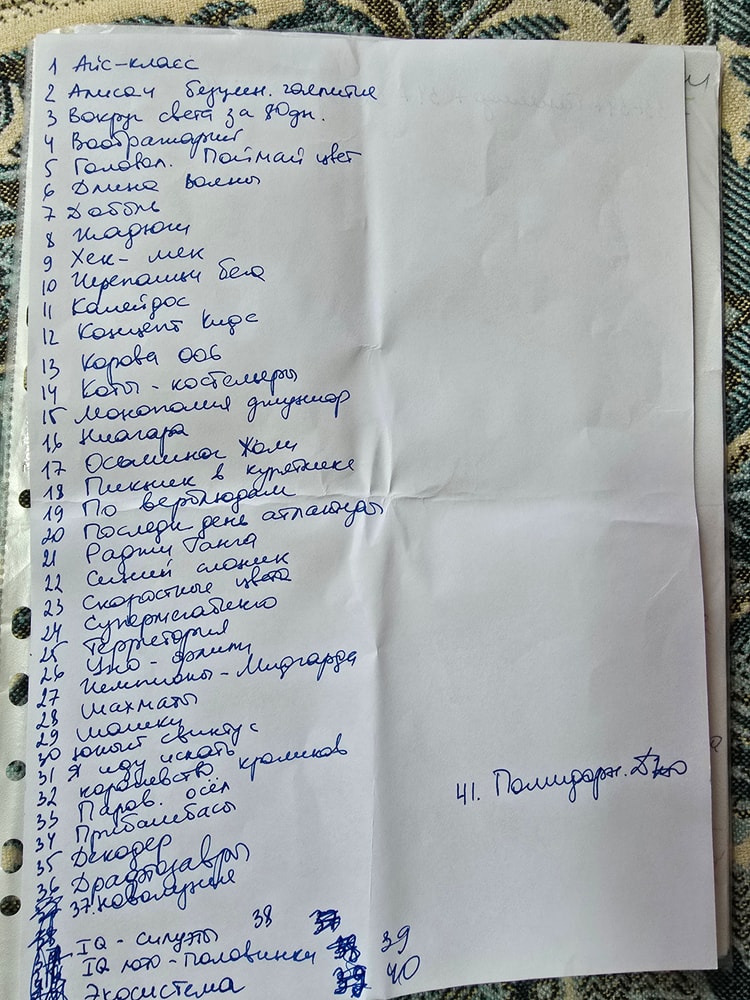 1 Айс-класс
2 Алисаи безумн. чаепитие
3 Вокруг света за 80дн.
4 Воображарий
5 Головол. Поймай цвет
6 Длина волны
7 Доббль
8 Жадюги
9 Хек-мек
10 Черепашьи бега
11 Калейдос
12 Концепт Кидс
13 Корова 006
14 Коты-костемеры
15 Монополия джуниор
16 Ниагара
17 Осьминог Жоли
18 Пикник в курятнике
19 По верблюдам
20 Последн день атлантиды
21 Раджи Ганга
22 Синий слоник
23 Скоростные цвета
24 Супермегатинго
25 Территория
26 Уно-флип
27 Чемпионы-Мидгарда
28 Шахматы
29 Шашки
30 Юный свинтус
31 Я иду искать
32 королевство кроликов
33 Паров. осёл
34 Прибамбасы
35 Декодер
36 Драфтозавры
37. Новолуние
IQ-силуэты 38
IQ лото-половинки 39
Экосистема 40
41. Помидорн. Джо